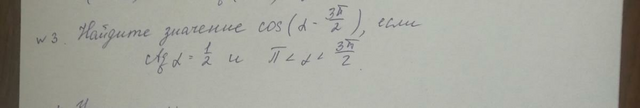 №3. Найдите значение cos(α - 3π/2), если
ctg α = 1/2 и π < α < 3π/2.